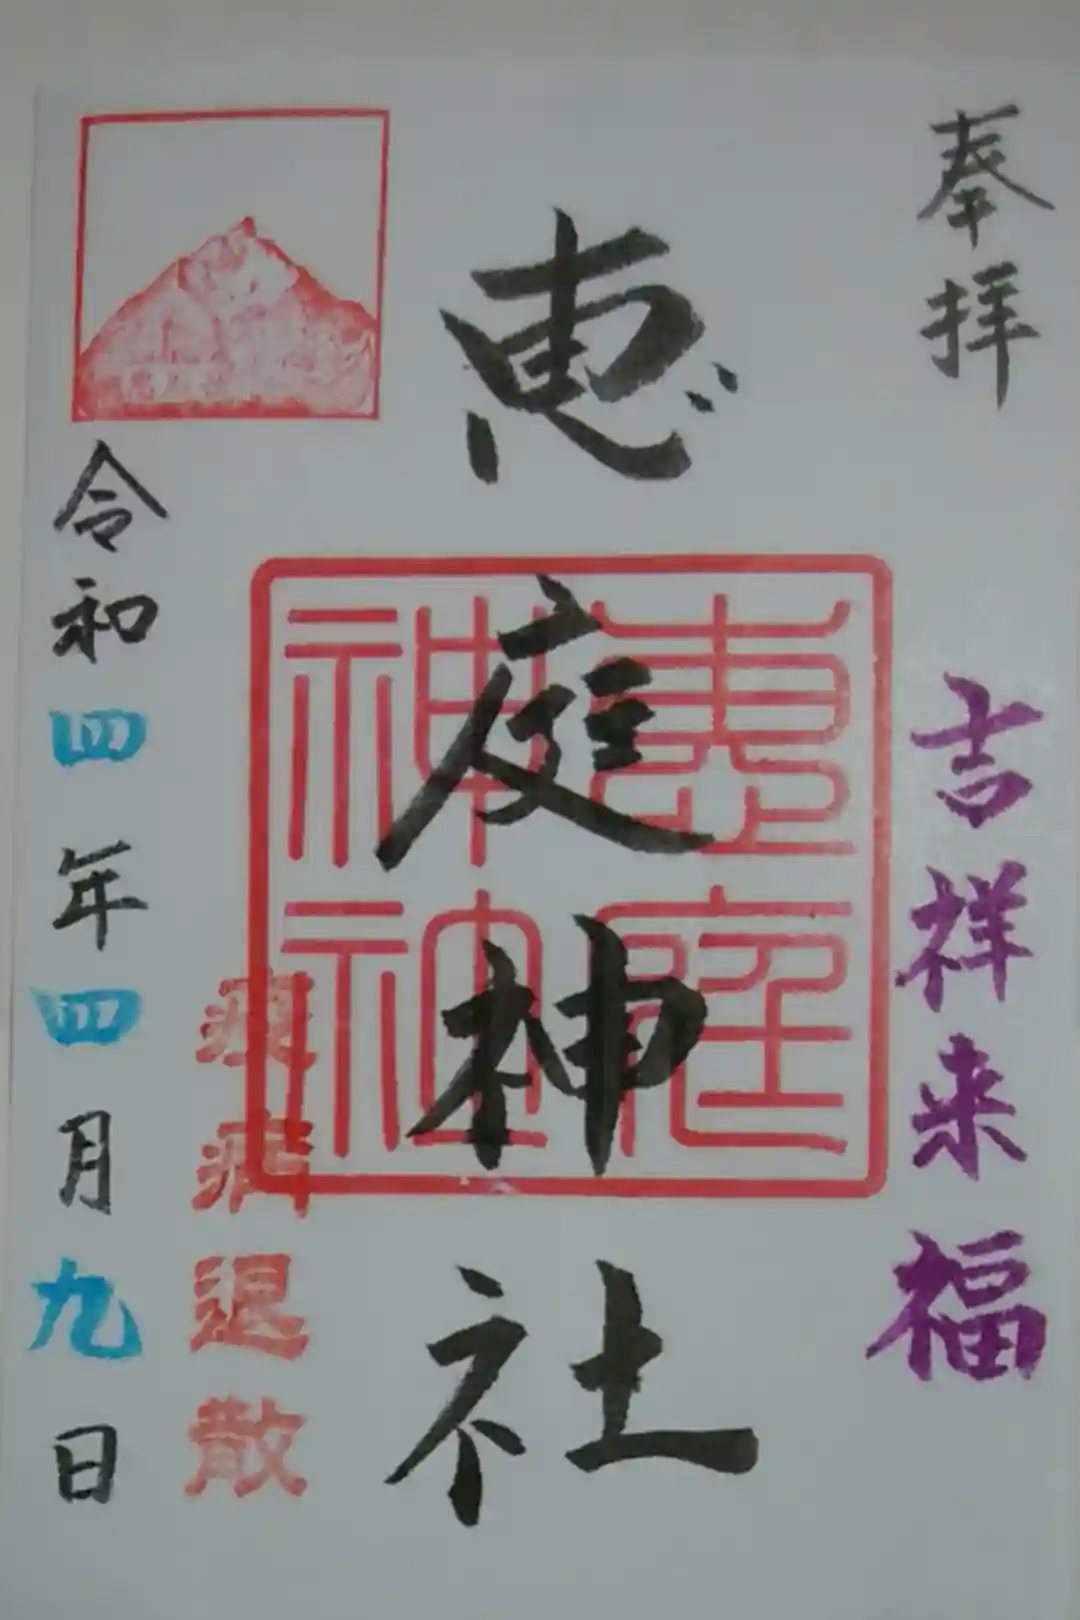 奉拝
吉祥来福
恵庭神社
恵庭神社
疫病退散
令和四年四月九日